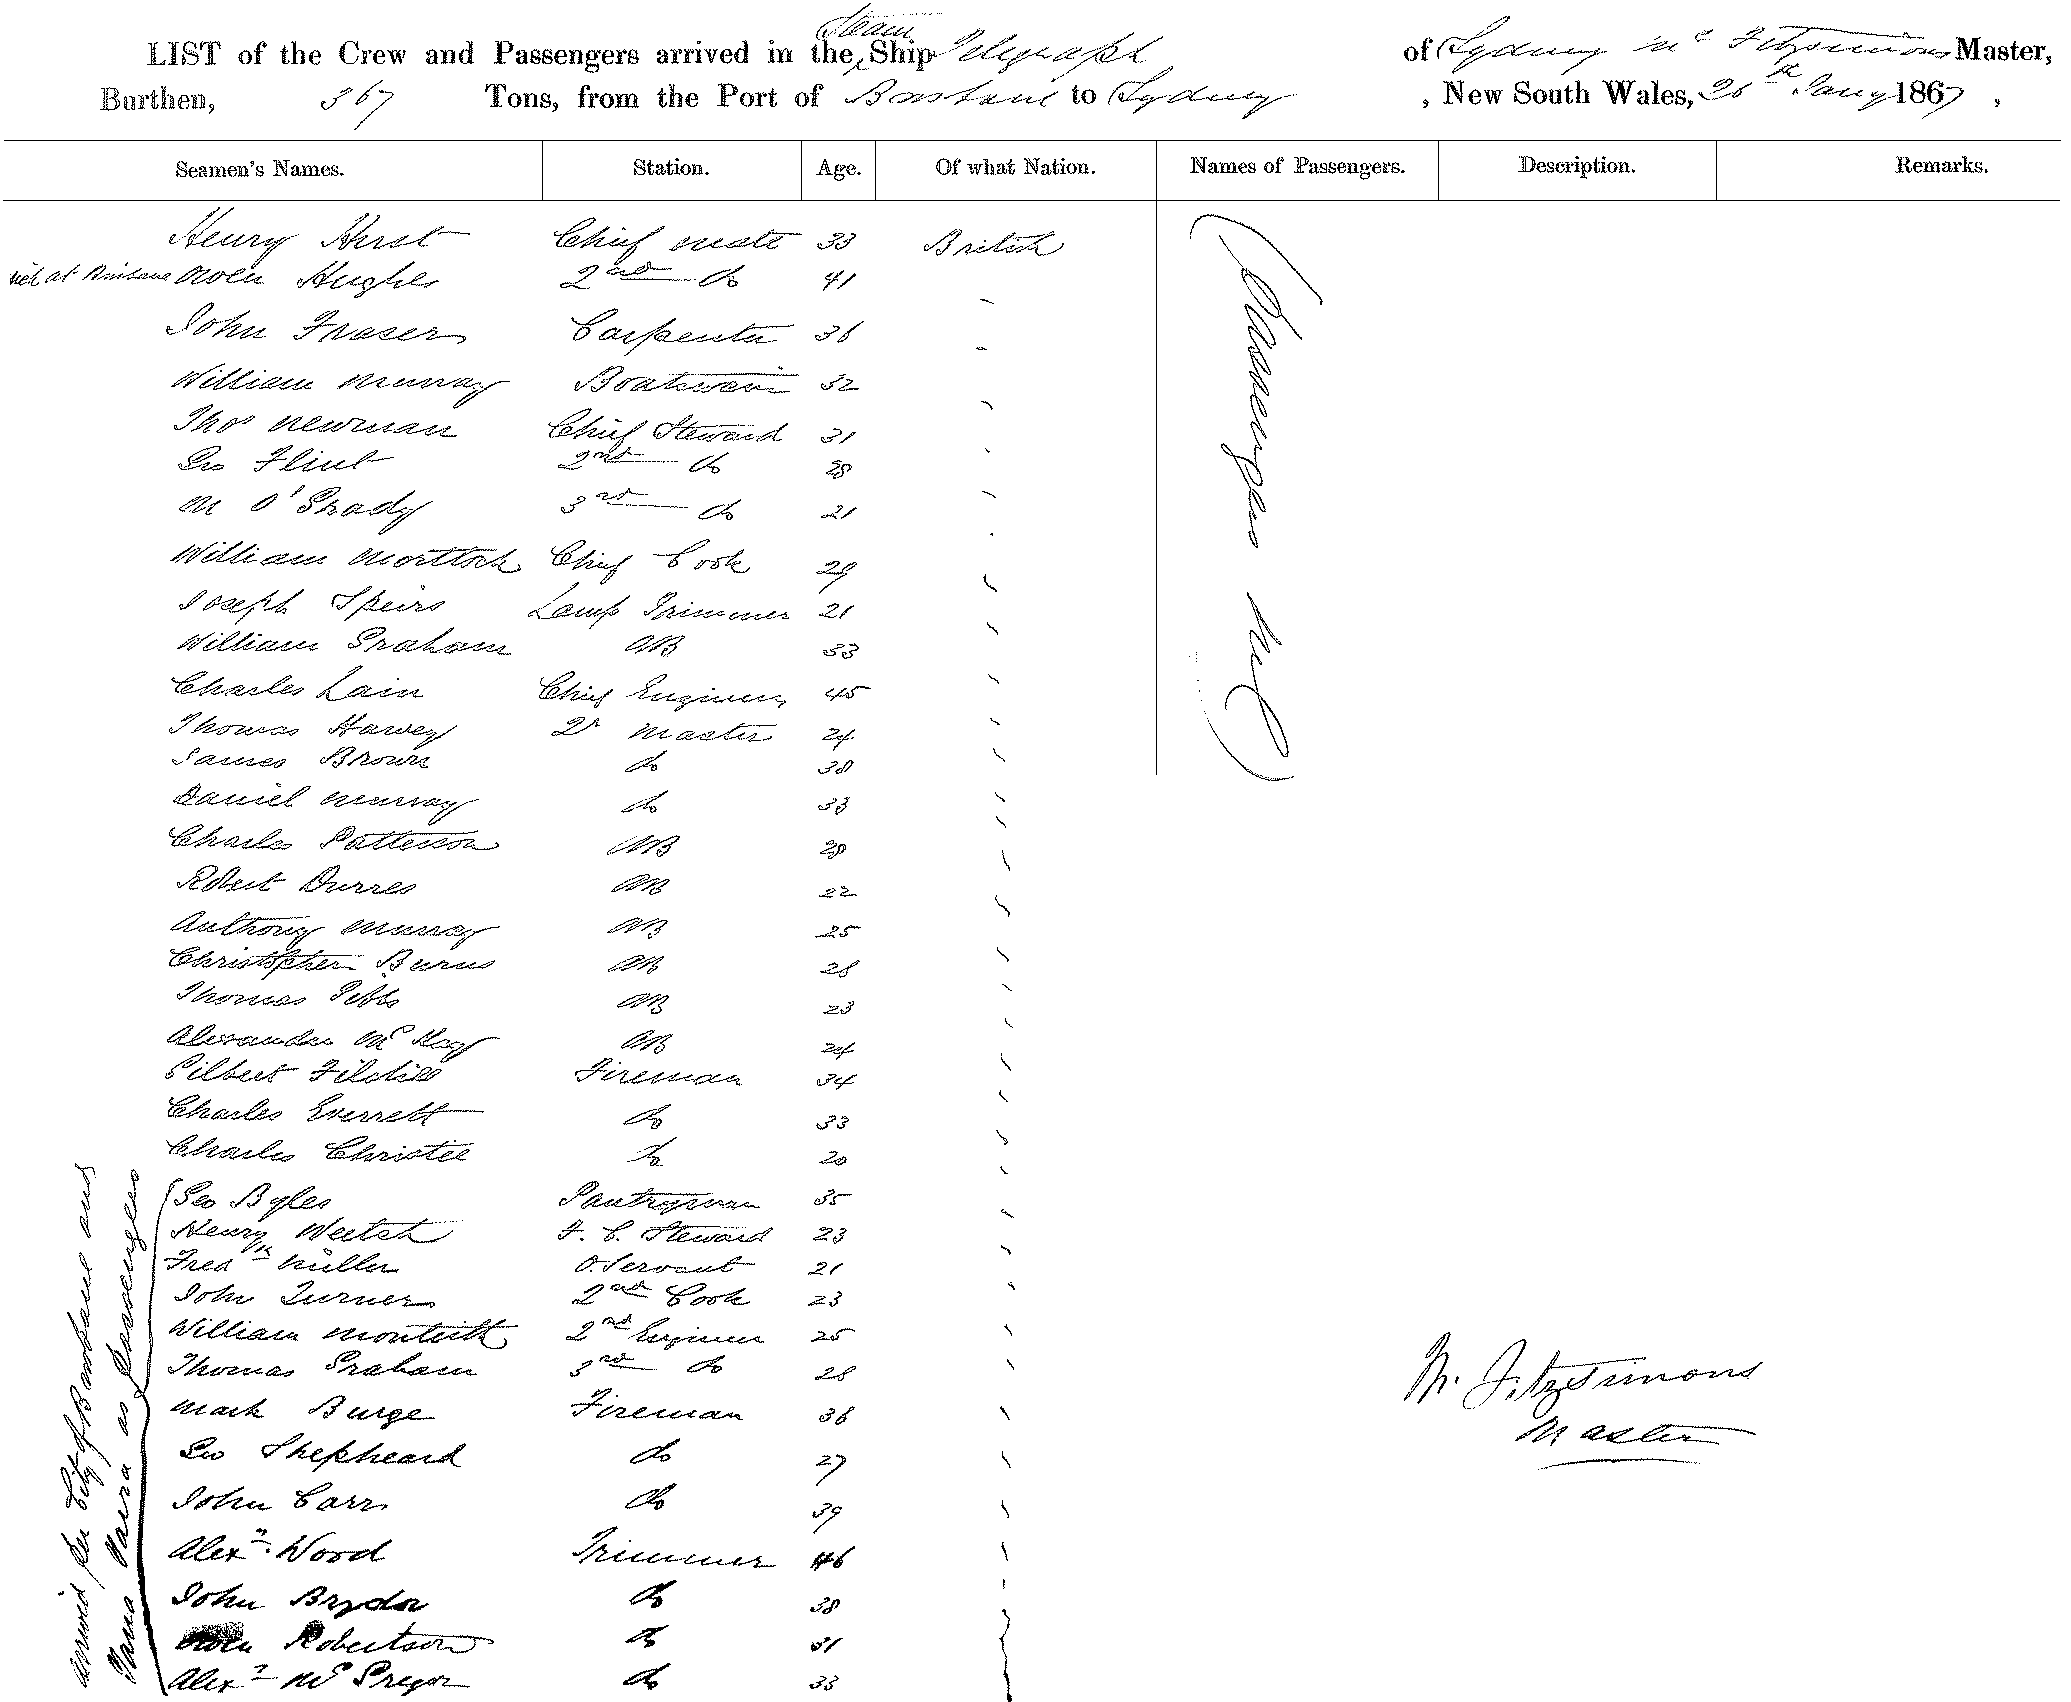 LIST of the Crew and Passengers arrived in the Steam Ship Telegraph of Sydney Mc Fitzsimons Master,
Burthen, 367 Tons, from the Port of Brisbane to Sydney, New South Wales, 26th Jany 1867,
Seamen's Names. Station. Age. Of what Nation. Names of Passengers. Description. Remarks.
Henry Hurst Chief Mate 33 British
at Brisbane Owen Hughes 2nd do 41
John Fraser Carpenter 36
William Murray Boatswain 32
Thos Newman Chief Steward 31
Geo Flint 2nd do 28
M O'Grady 3rd do 21
William Mortlock Chief Cook 29
Joseph Speirs Lamp Trimmer 21
William Graham AB 33
Charles Lain Chief Engineer 45
Thomas Harvey Qr Master 24
James Brown do 38
Daniel Murray do 33
Charles Patterson AB 28
Robert Durres AB 22
Anthony Murray AB 25
Christopher Burns AB 28
Thomas Tebbs AB 23
Alexander McKay AB 24
Gilbert Fireman 34
Charles Everrett do 33
Charles Christie do 20
Geo Byles Pantryman 35
Henry Weetch F. C. Steward 23
Fredk Müller O. Servant 21
John Turner 2nd Cook 23
William Monteith 2nd Engineer 25
Thomas Graham 3rd do 28
Mark Burge Fireman 36
Geo Shepheard do 27
John Carr do 39
Alexr. Wood Trimmer 46
John Brydon do 38
Owen Robertson do 31
Alexr McGregor do 33
arrived per City of Brisbane and
Yarra Yarra as Passengers
Passengers Nil
M. FitzSimons
Master